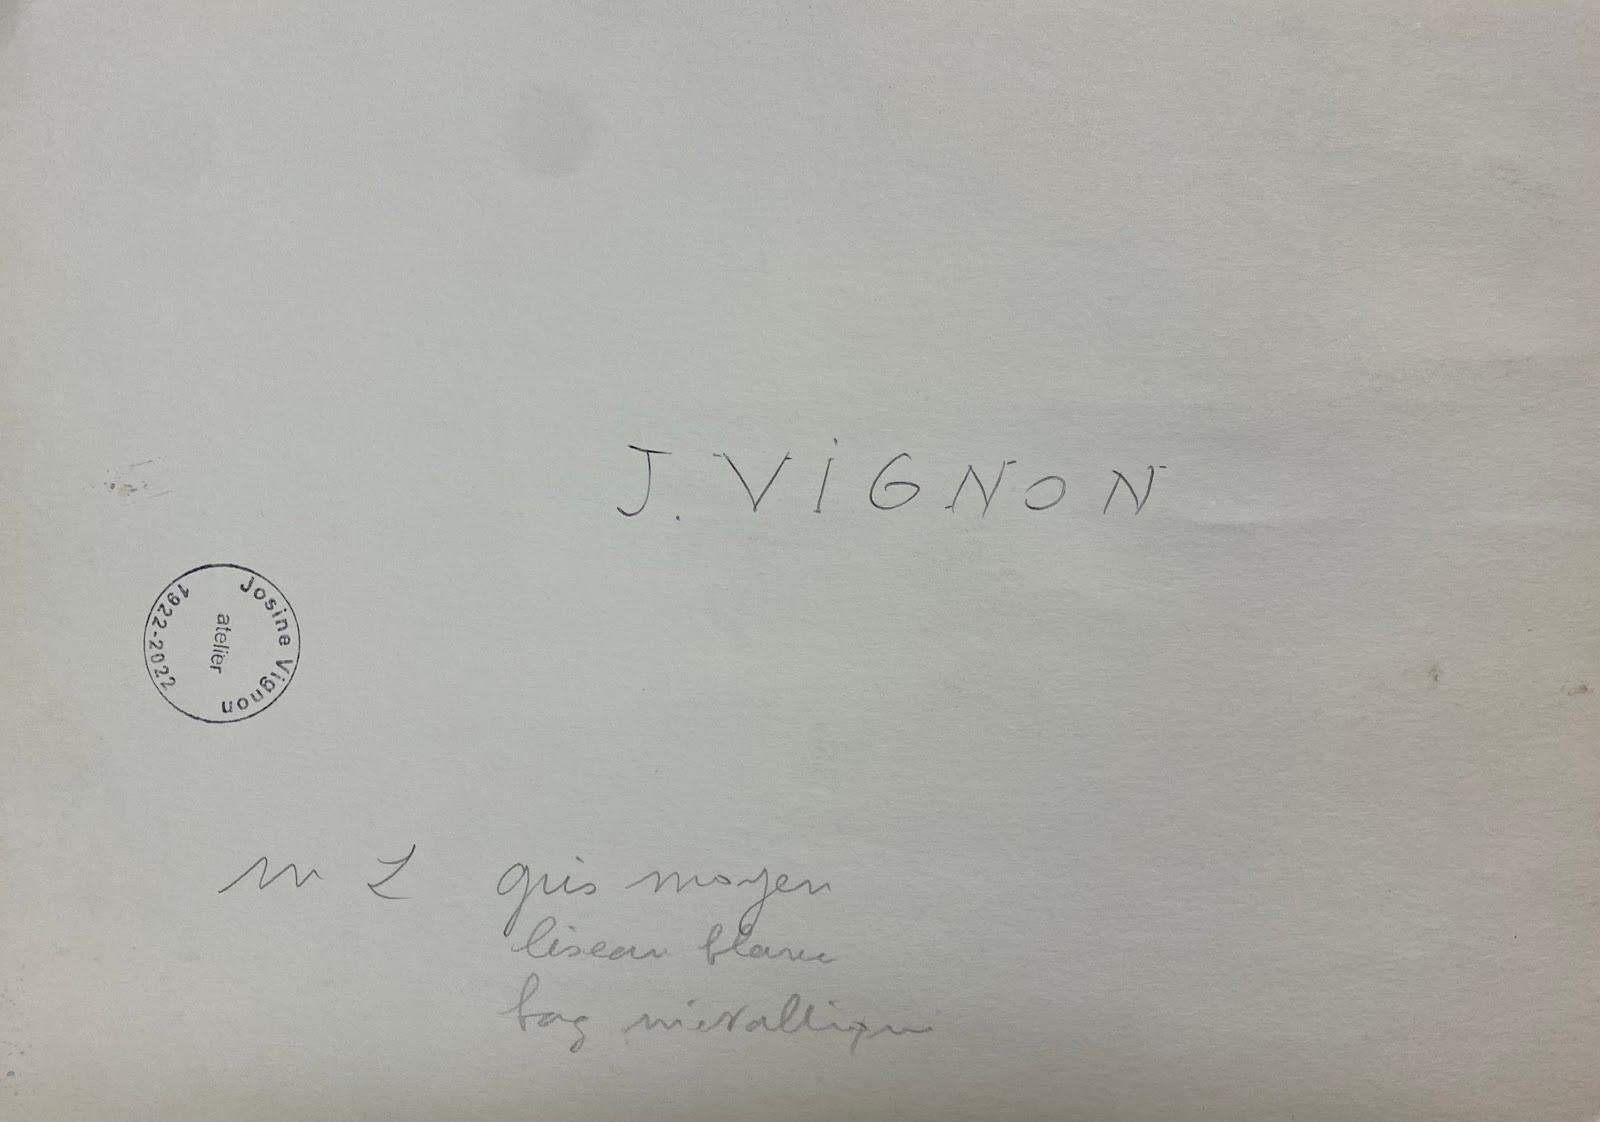 J. VIGNON
Josine Vignon
atelier
1922-2022
gris moyen
liseau blanc
bag métallique